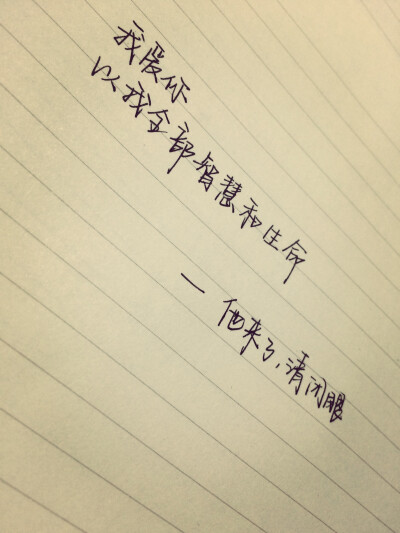 我爱你
以我全部智慧和生命
— 他来了,请闭眼